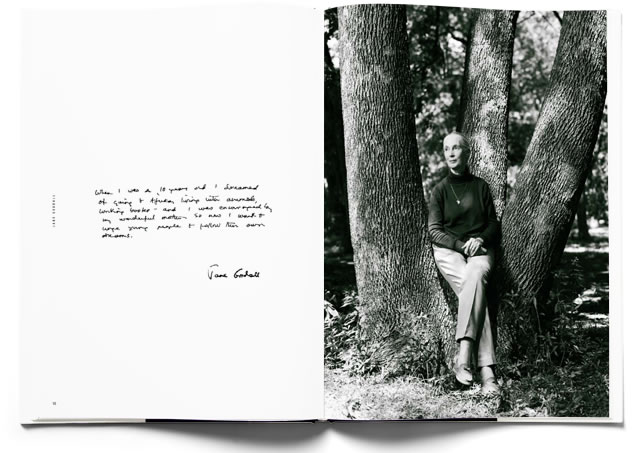 When I was a 10 years old I dreamed
of going to Africa, living with animals,
writing books - and I was encouraged by
my wonderful mother. So now I want to
urge young people to follow their own
dreams.
Jane Goodall
JANE GOODALL